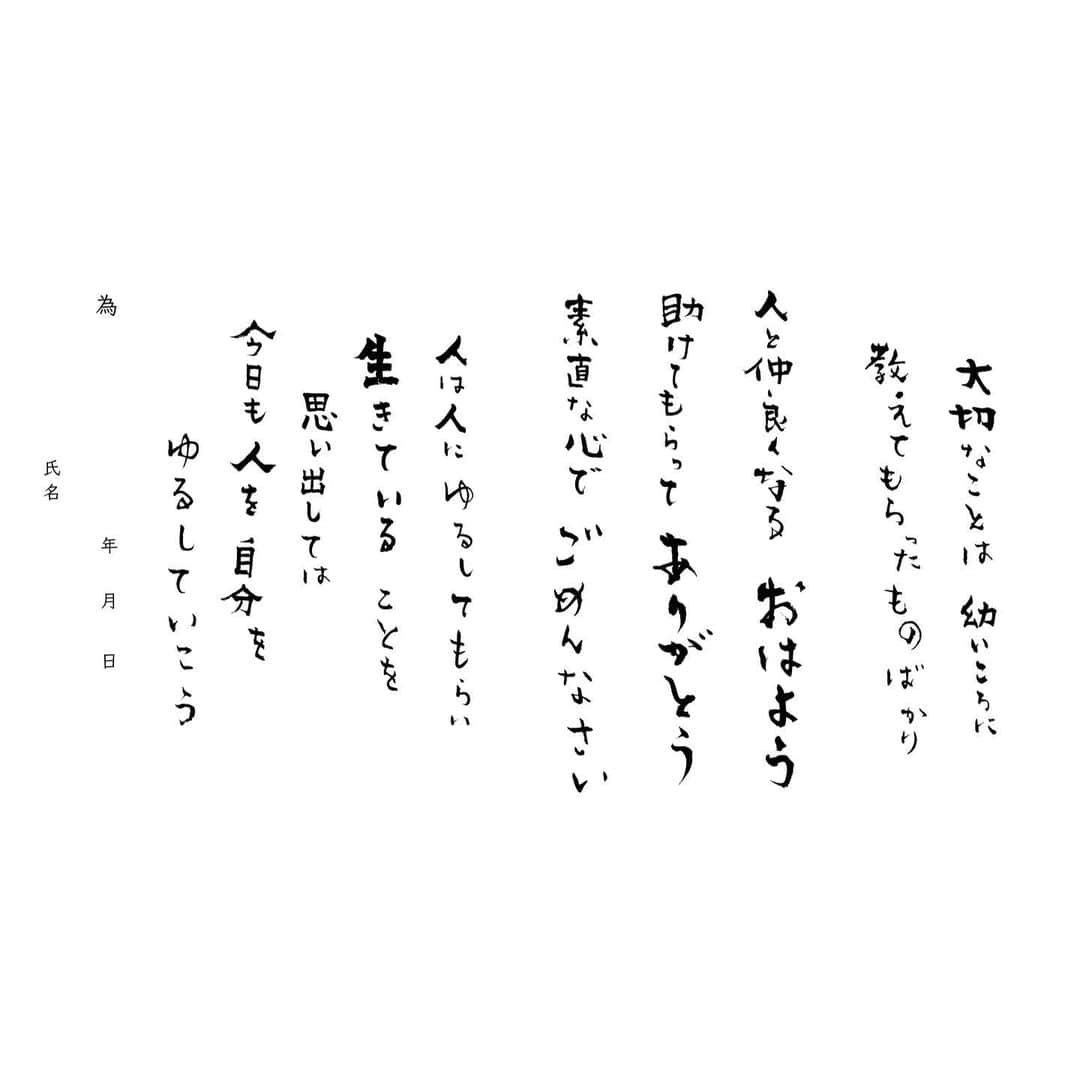 大切なことは 幼いころに
教えてもらったものばかり
人と仲良くなる おはよう
助けてもらって ありがとう
素直な心で ごめんなさい
人は人に ゆるしてもらい
生きている ことを
思い出しては
今日も 人を 自分を
ゆるしていこう
為
年 月 日
氏名